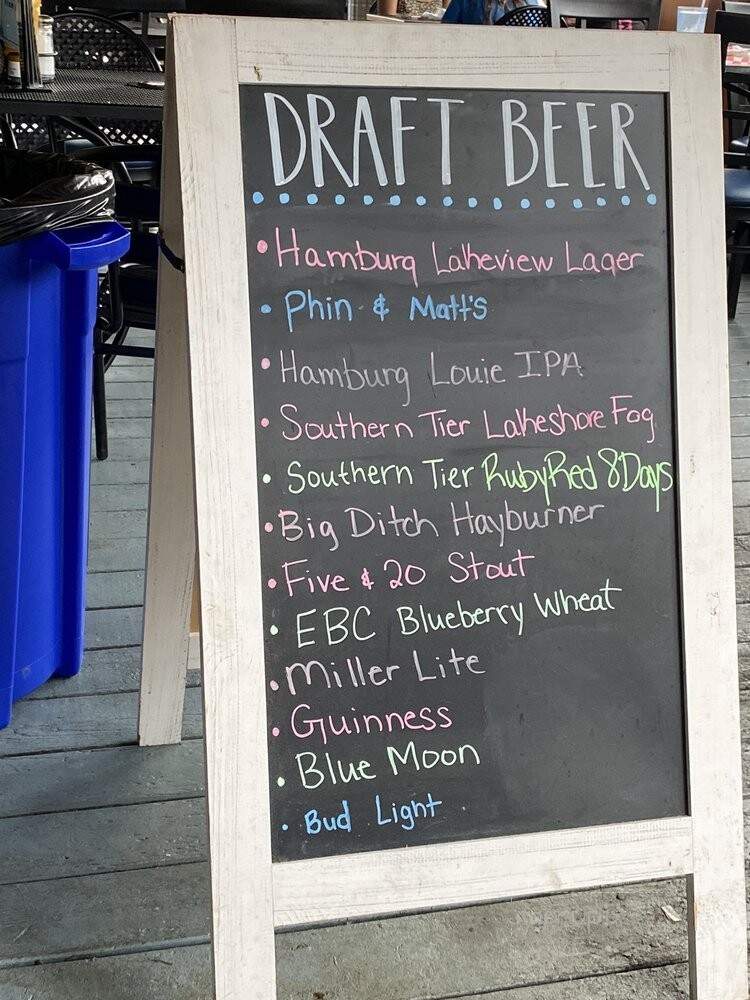 DRAFT BEER
• Hamburg Lakeview Lager
• Phin & Matt's
• Hamburg Louie IPA
• Southern Tier Lakeshore Fog
• Southern Tier Ruby Red 8 Days
• Big Ditch Hayburner
• Five & 20 Stout
• EBC Blueberry Wheat
• Miller Lite
• Guinness
• Blue Moon
• Bud Light